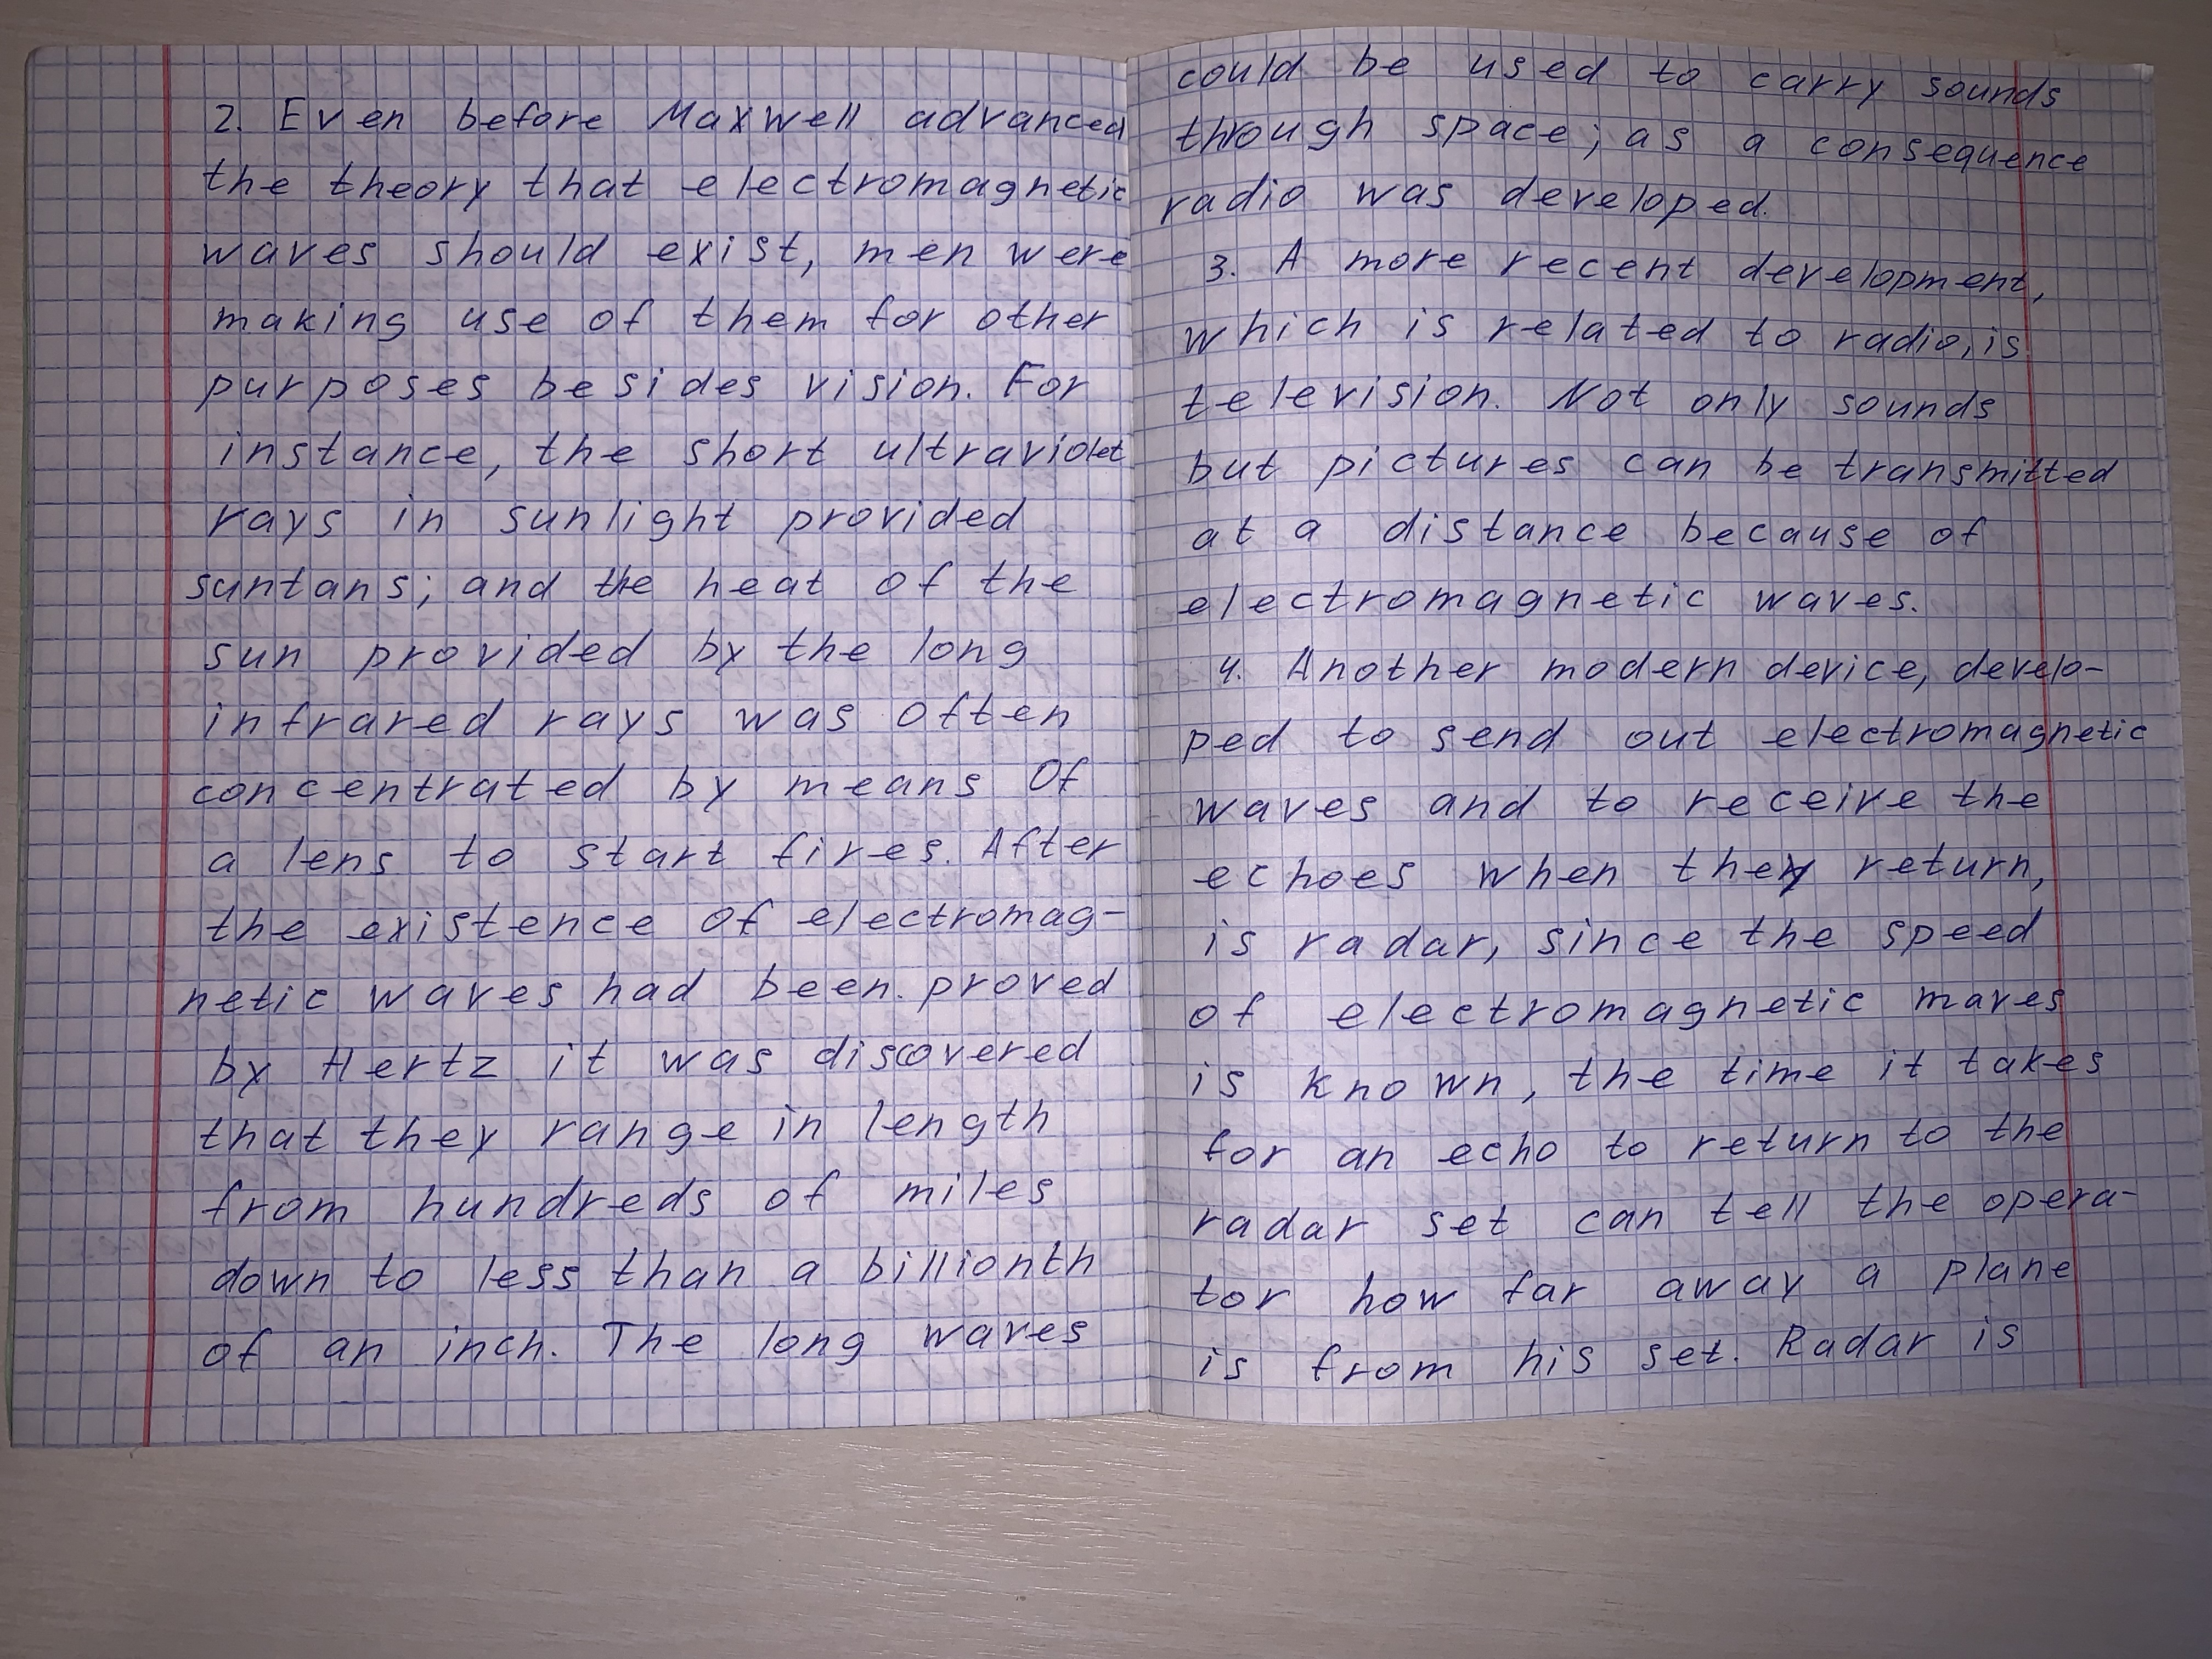 2. Even before Maxwell advanced
the theory that electromagnetic
waves should exist, men were
making use of them for other
purposes besides vision. For
instance, the short ultraviolet
rays in sunlight provided
suntans; and the heat of the
sun provided by the long
infrared rays was often
concentrated by means Of
a lens to start fires. After
the existence of electromag-
netic waves had been proved
by Hertz it was discovered
that they range in length
from hundreds of miles
down to less than a billionth
of an inch. The long waves
could be used to carry sounds
through space; as a consequence
radio was developed.
3. A more recent development,
which is related to radio, is
television. Not only sounds
but pictures can be transmitted
at a distance because of
electromagnetic waves.
4. Another modern device, develo-
ped to send out electromagnetic
waves and to receive the
echoes when they return,
is radar, since the speed
of electromagnetic maves
is known, the time it takes
for an echo to return to the
radar set can tell the opera-
tor how far away a plane
is from his set. Radar is